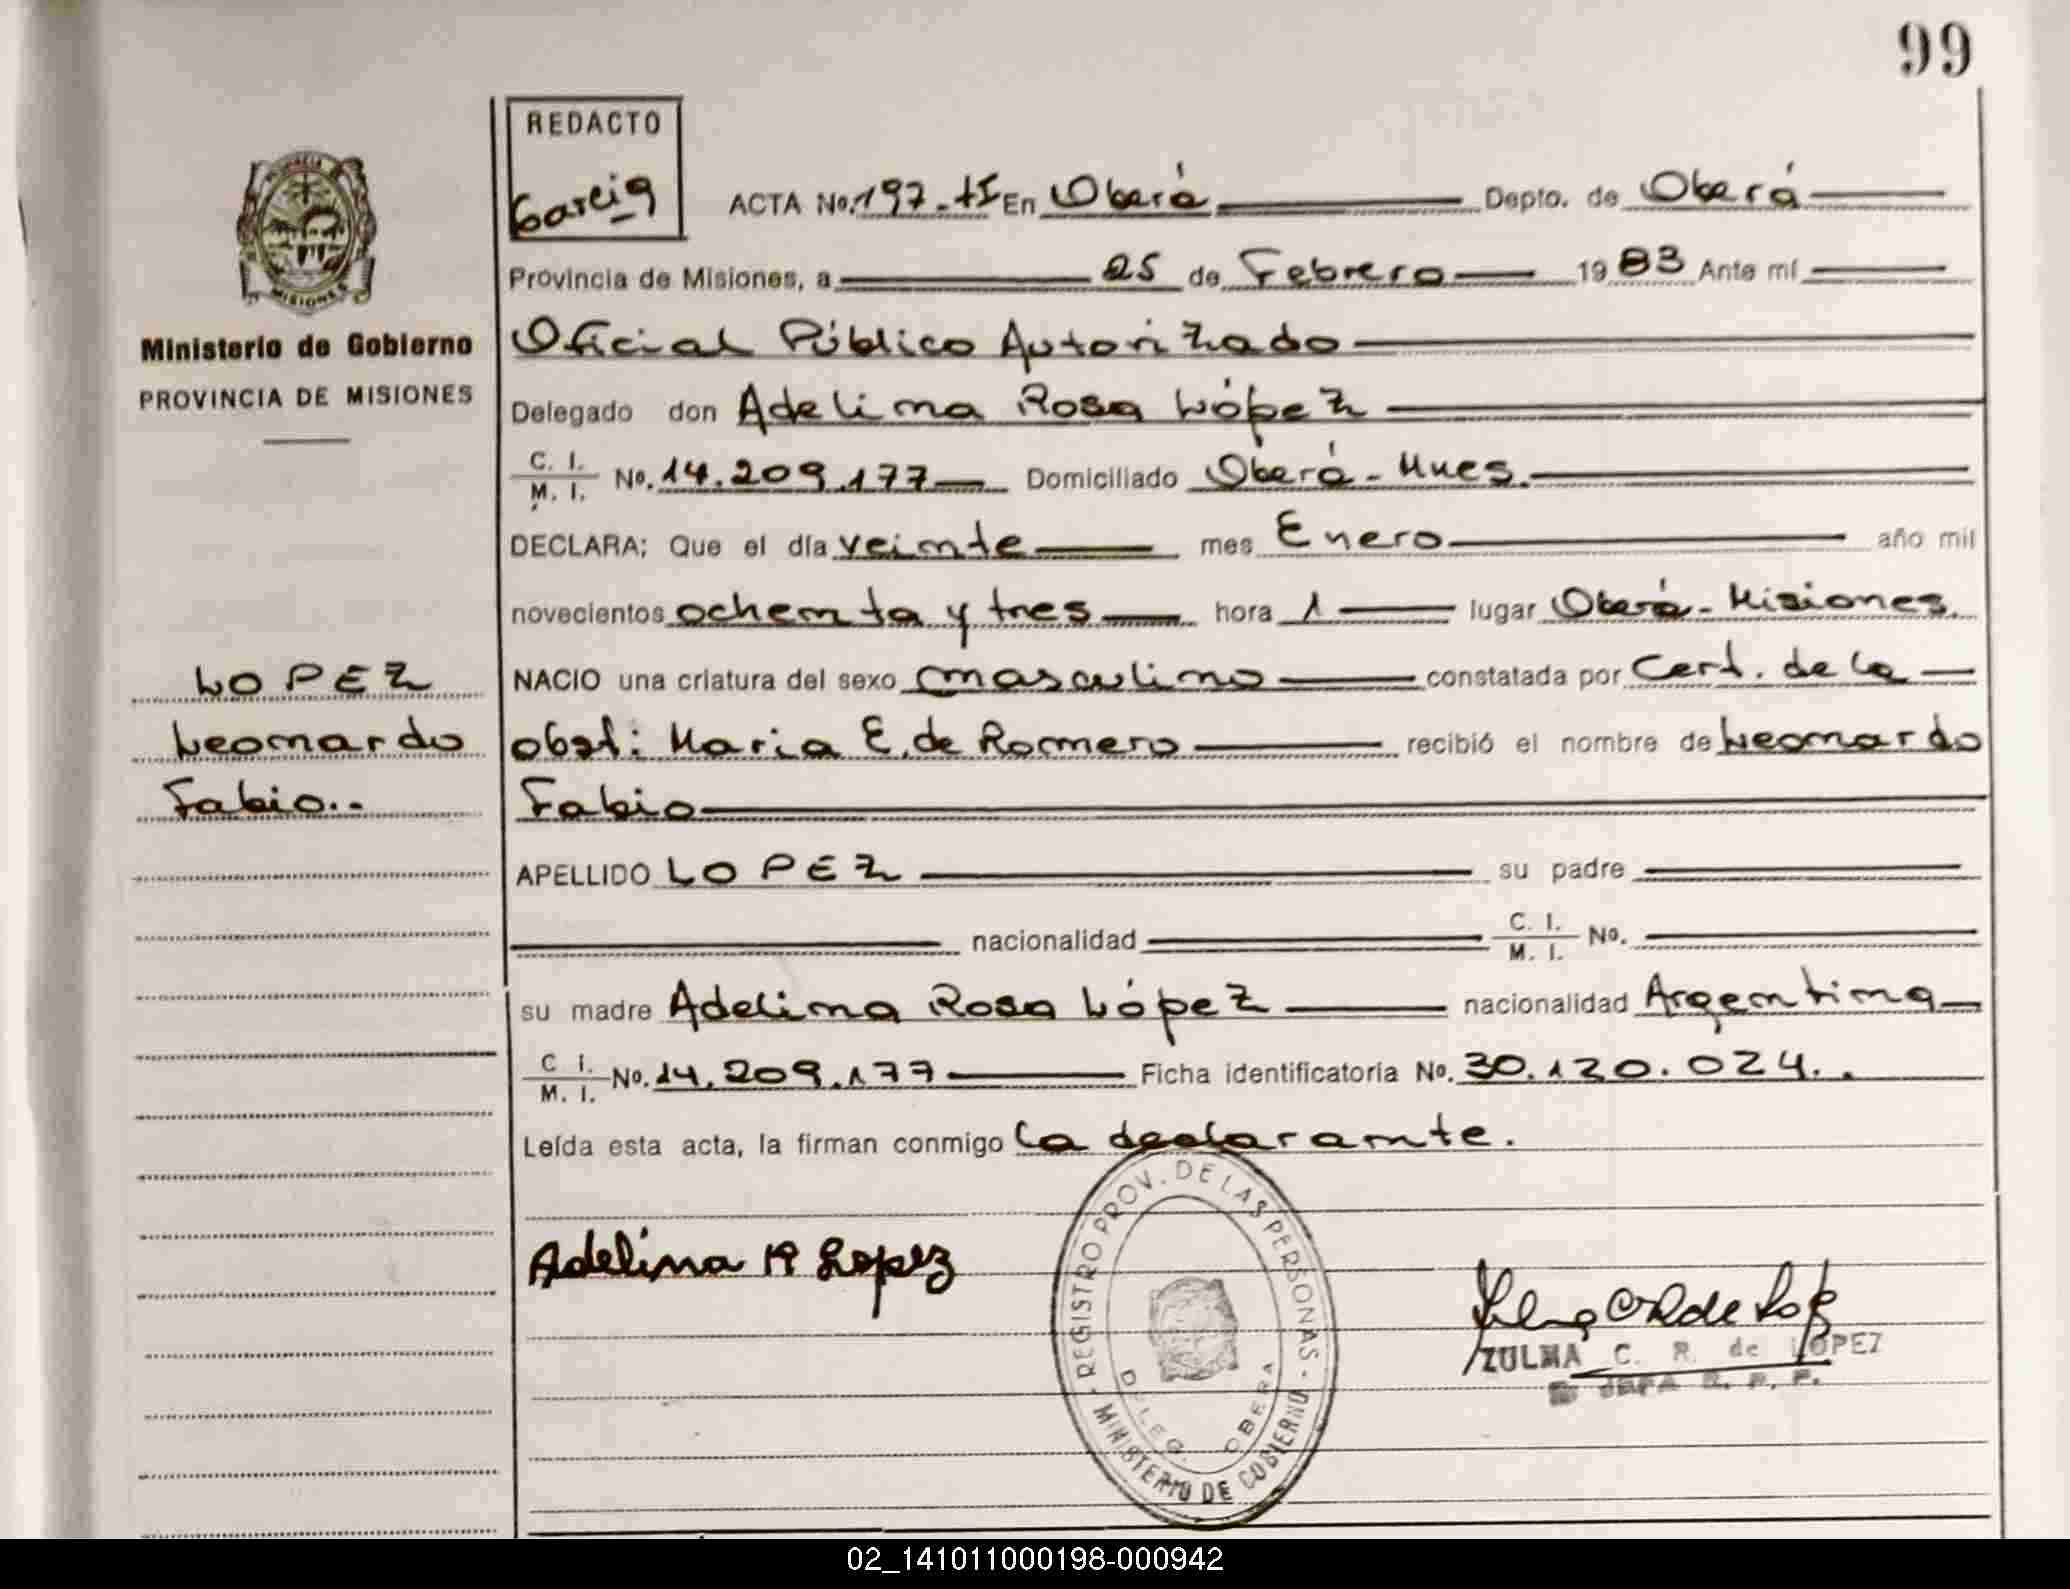 99
REDACTO
Garcia
ACTA No. 197-tI En Oberá Depto. de Oberá
Provincia de Misiones, a 25 de Febrero 1983 Ante mí
Ministerio de Gobierno
PROVINCIA DE MISIONES
MISIONES
Oficial Público Autorizado
Delegado don Adelina Rosa López
C. I.
M. I. No. 14.209.177 Domiciliado Oberá - Mnes.
DECLARA; Que el día veinte mes Enero año mil
novecientos ochenta y tres hora 1 lugar Oberá - Misiones.
LOPEZ
Leonardo
Fabio..
NACIO una criatura del sexo masculino constatada por Cert. de la
obst: Maria E. de Romero recibió el nombre de Leonardo
Fabio
APELLIDO LOPEZ su padre
nacionalidad C. I.
M. I. No.
su madre Adelina Rosa López nacionalidad Argentina
C I.
M. I. No. 14.209.177 Ficha identificatoria No. 30.120.024..
Leída esta acta, la firman conmigo la declarante.
Adelina R Lopez
REGISTRO PROV. DE LAS PERSONAS - MINISTERIO DE GOBIERNO
DELEG. OBERA
ZULMA C. R. de LOPEZ
JEFA R. P. P.
02_141011000198-000942